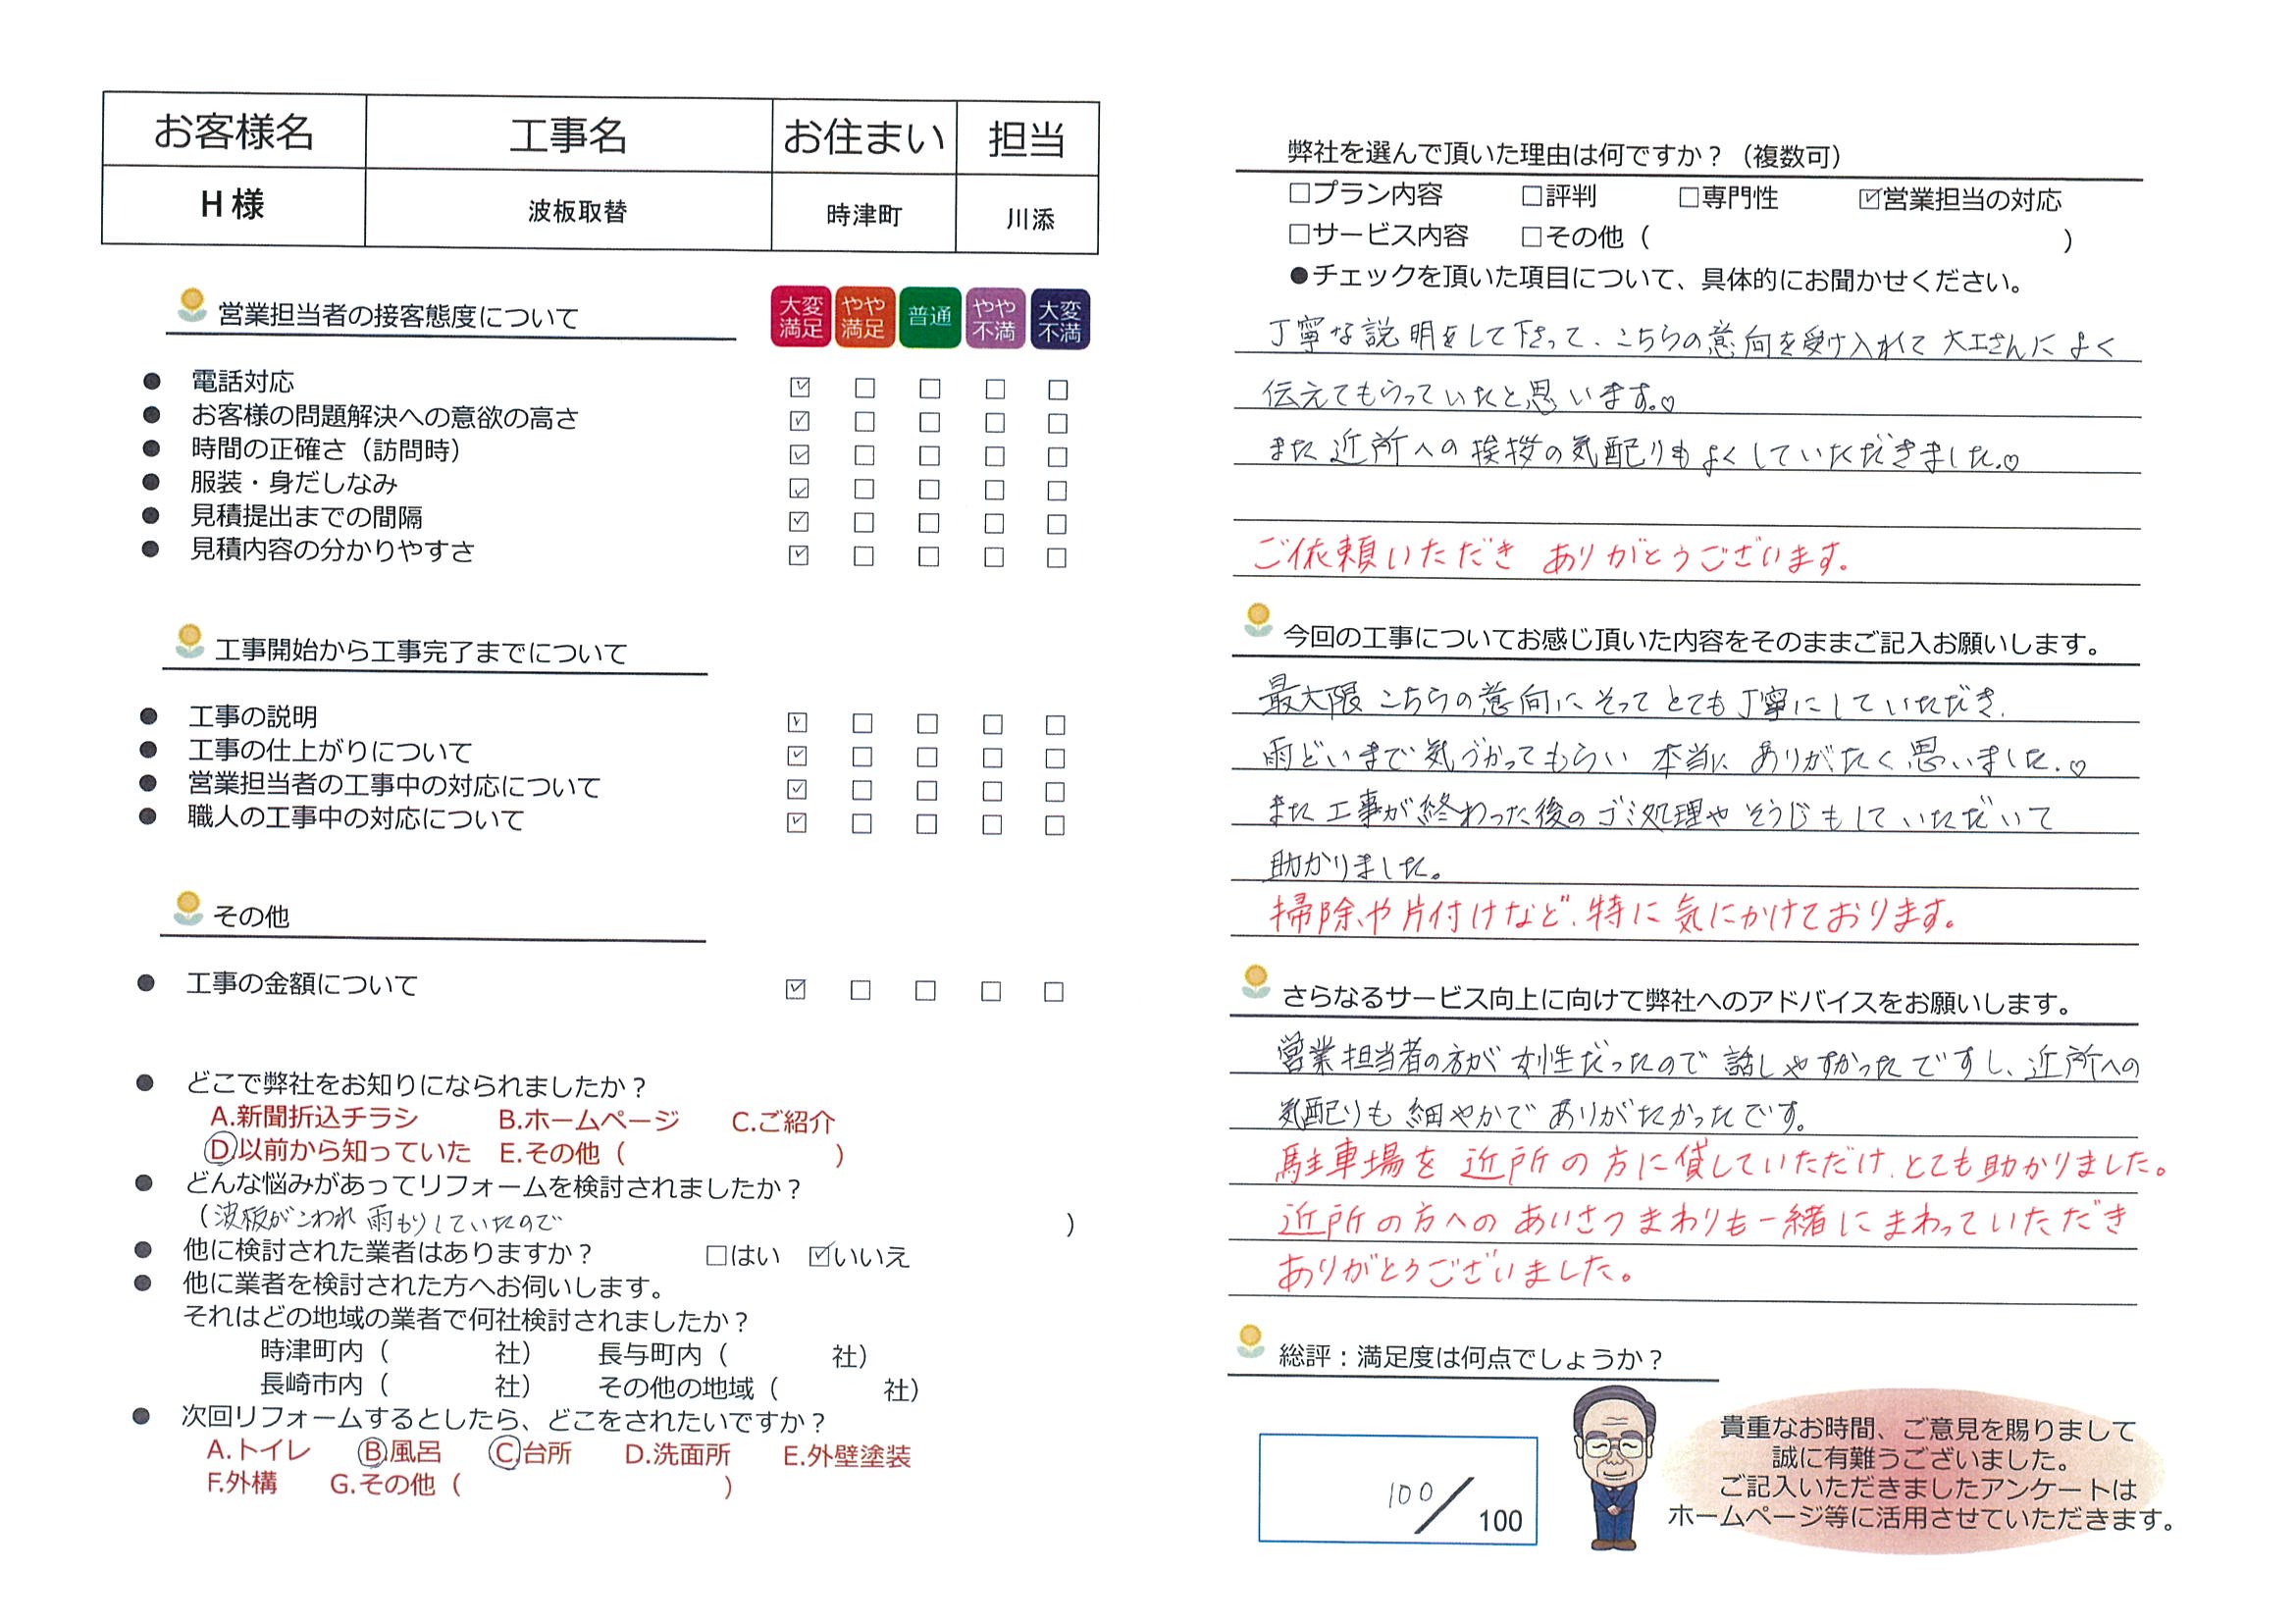 お客様名 工事名 お住まい 担当
H様 波板取替 時津町 川添
営業担当者の接客態度について
大変満足 やや満足 普通 やや不満 大変不満
● 電話対応 ☑ □ □ □ □
● お客様の問題解決への意欲の高さ ☑ □ □ □ □
● 時間の正確さ（訪問時） ☑ □ □ □ □
● 服装・身だしなみ ☑ □ □ □ □
● 見積提出までの間隔 ☑ □ □ □ □
● 見積内容の分かりやすさ ☑ □ □ □ □
工事開始から工事完了までについて
● 工事の説明 ☑ □ □ □ □
● 工事の仕上がりについて ☑ □ □ □ □
● 営業担当者の工事中の対応について ☑ □ □ □ □
● 職人の工事中の対応について ☑ □ □ □ □
その他
● 工事の金額について ☑ □ □ □ □
● どこで弊社をお知りになられましたか？
A.新聞折込チラシ B.ホームページ C.ご紹介
D.以前から知っていた E.その他（ ）
● どんな悩みがあってリフォームを検討されましたか？
（波板がこわれ 雨もりしていたので ）
● 他に検討された業者はありますか？ □はい ☑いいえ
● 他に業者を検討された方へお伺いします。
それはどの地域の業者で何社検討されましたか？
時津町内（ 社） 長与町内（ 社）
長崎市内（ 社） その他の地域（ 社）
● 次回リフォームするとしたら、どこをされたいですか？
A.トイレ B.風呂 C.台所 D.洗面所 E.外壁塗装
F.外構 G.その他（ ）
弊社を選んで頂いた理由は何ですか？（複数可）
□プラン内容 □評判 □専門性 ☑営業担当の対応
□サービス内容 □その他（ ）
●チェックを頂いた項目について、具体的にお聞かせください。
丁寧な説明をして下さって、こちらの意向を受け入れて大工さんによく
伝えてもらっていたと思います。♡
また近所への挨拶の気配りもよくしていただきました。♡
ご依頼いただき ありがとうございます。
今回の工事についてお感じ頂いた内容をそのままご記入お願いします。
最大限 こちらの意向にそって とても丁寧にしていただき、
雨どいまで気づかってもらい 本当に ありがたく思いました。♡
また工事が終わった後のゴミ処理や そうじもしていただいて
助かりました。
掃除や片付けなど、特に気にかけております。
さらなるサービス向上に向けて弊社へのアドバイスをお願いします。
営業担当者の方が 女性だったので 話しやすかったですし、近所への
気配りも 細やかで ありがたかったです。
駐車場を 近所の方に貸していただけ、とても助かりました。
近所の方への あいさつまわりも一緒にまわっていただき
ありがとうございました。
総評：満足度は何点でしょうか？
100／100
貴重なお時間、ご意見を賜りまして
誠に有難うございました。
ご記入いただきましたアンケートは
ホームページ等に活用させていただきます。